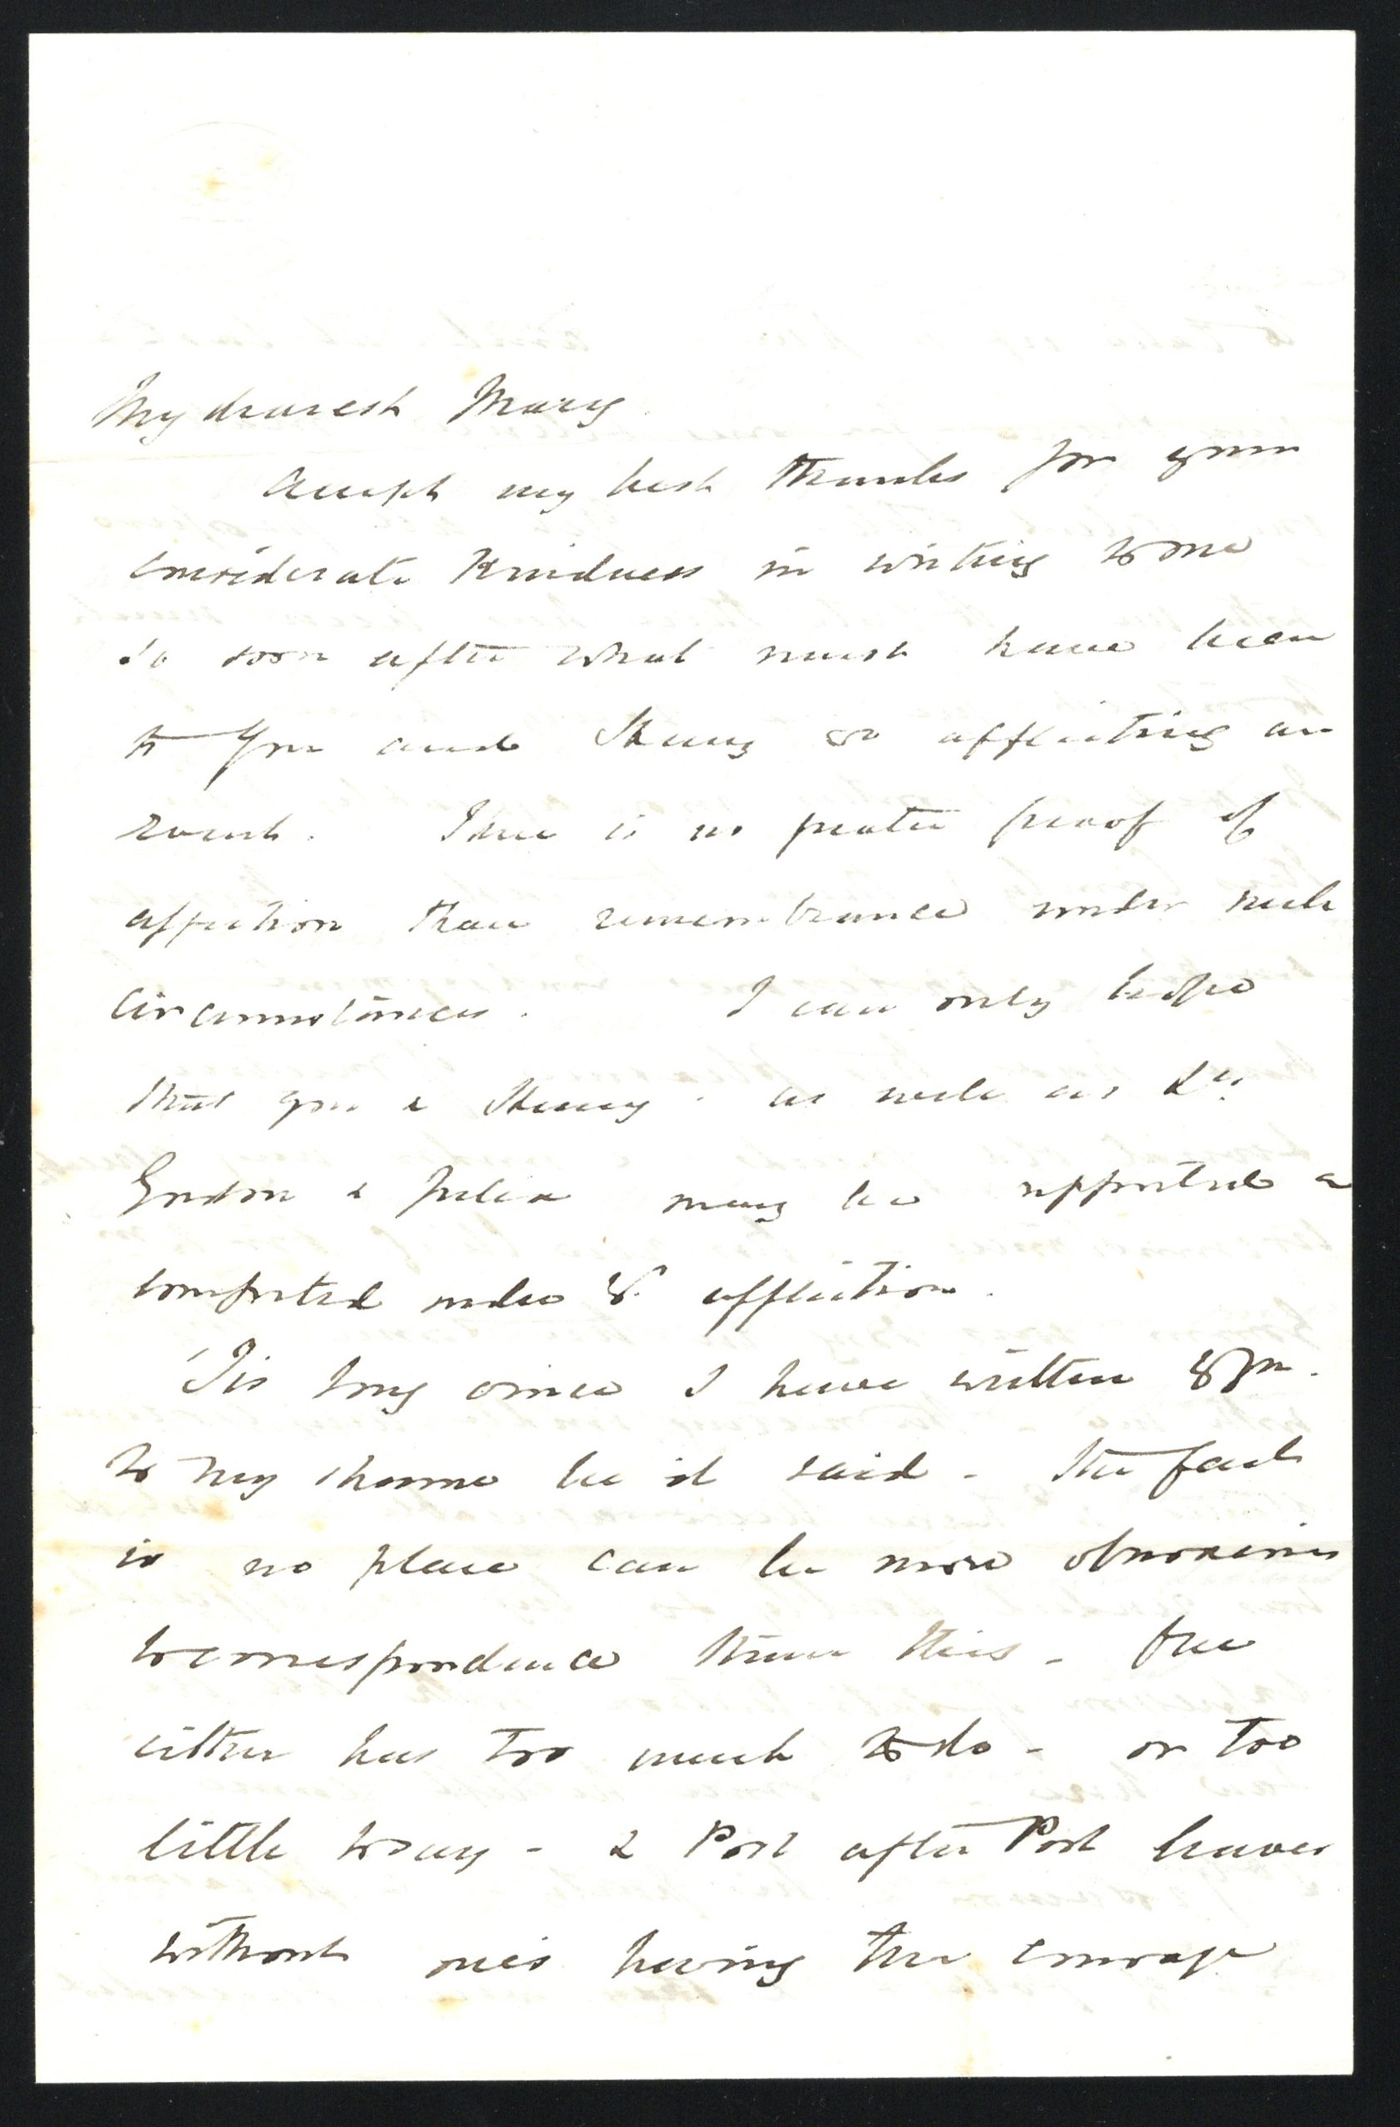 My dearest Mary
Accept my best thanks for your
considerate kindness in writing to me
so soon after what must have been
to you and Henry so afflicting an
event. There is no greater proof of
affection than remembrance under such
circumstances. I can only hope
that you & Henry - as well as Ly
Gordon & Julia may be supported &
comforted under yr affliction.
'Tis long since I have written to you.
to my shame be it said - the fact
is no place can be more obnoxious
to correspondence than this - One
either has too much to do - or too
little to say - & Post after Post leaves
without one's having the courage